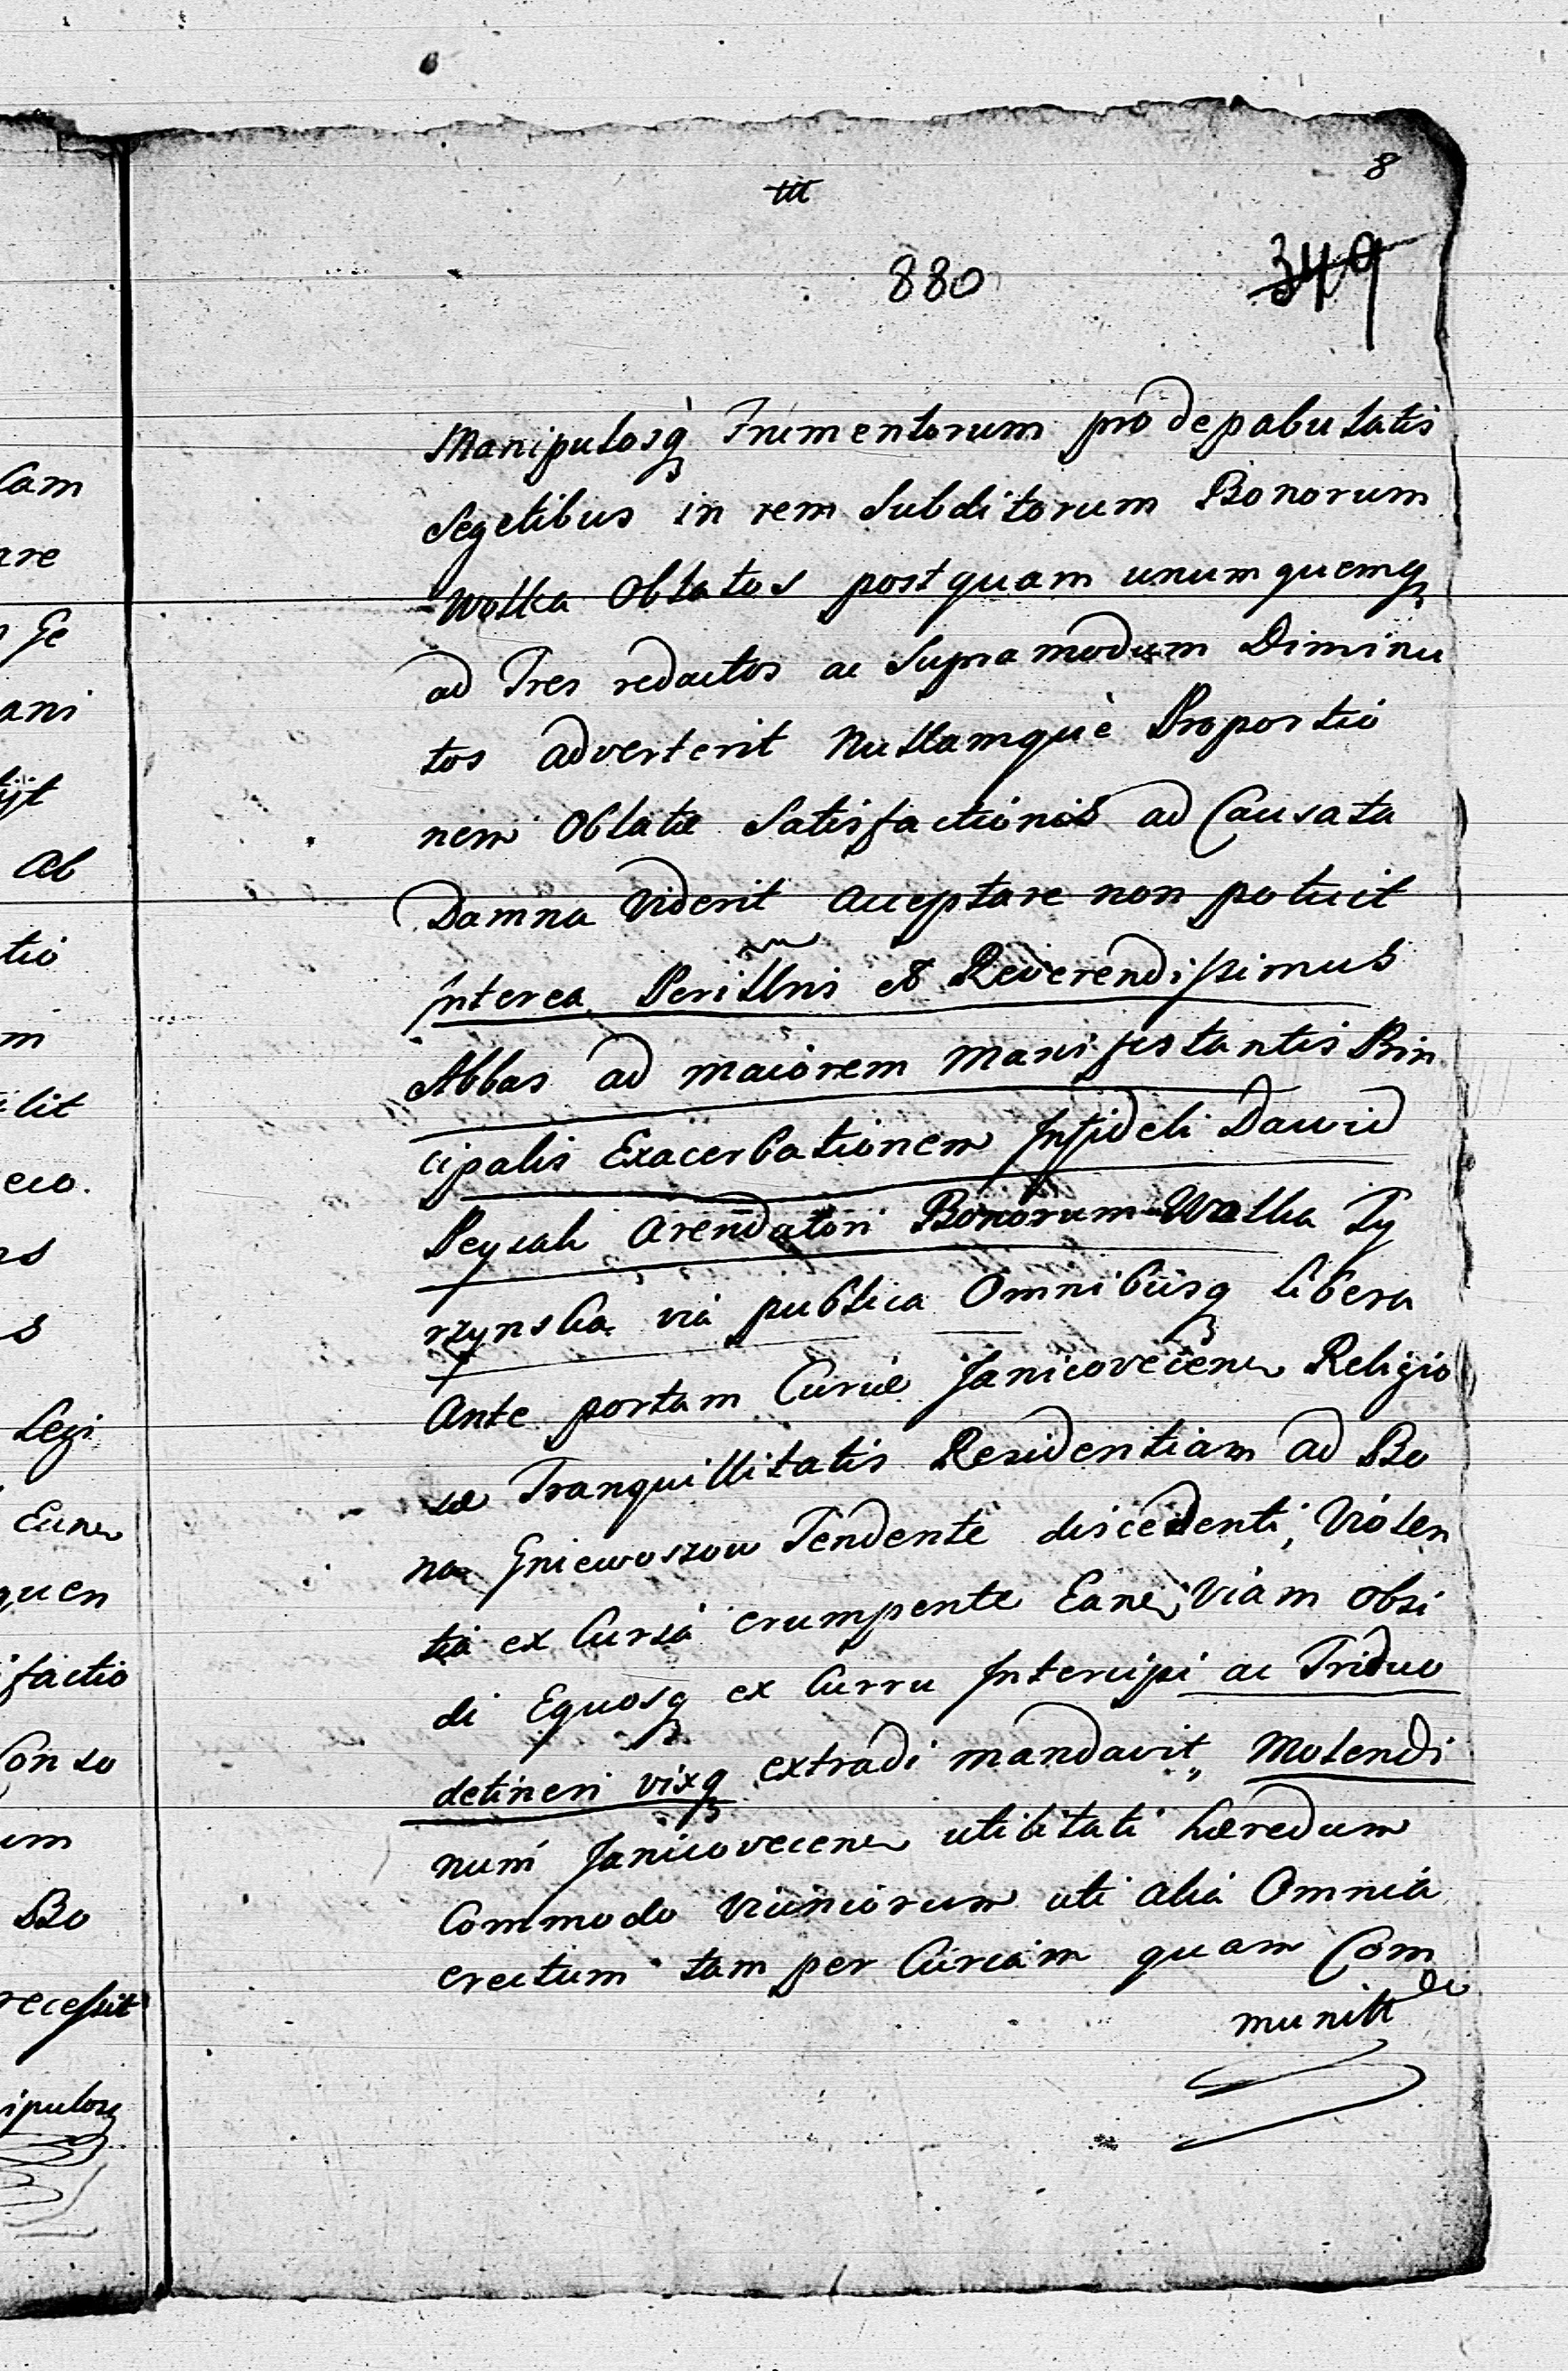 8
III
880
349
Manipulosq̀ Frumentorum pro depabulatis
Segetibus in rem Subditorum Bonorum
Wolka Oblatos postquam unumquemq
ad Tres redactos ac Supramodum Diminu
tos adverterit Nullamquè Proportio
nem Oblatæ Satisfactionis ad Causata
Damna Viderit acceptare non potuit
Interea Perillris et Reverendissimus
Abbas ad maiorem Manifestantis Prin
cipalis Exacerbationem Infideli Dawid
Peysak Arendatori Bonorum Wolka Ty
rzynska via publica Omnibusq libera
Ante portam Curiæ Janicovecen Religio
sæ Tranquillitatis Residentiam ad Bo
na Gniewoszow Tendente discedenti, Violen
tia ex Curia erumpente Eanem Viam obsi
di Equosq ex Curru Intercipi ac Triduo
detineri vixq extradi mandavit„ Molendi
num Janicovecen utilitati hæredum
Commodo Vicinorum uti alia Omnia
erectum tam per Curiam quam Com
munitt
Cam
are
Ge
ani
Ab
tio
m
lit
ecio.
s
Legi
Eune
quen
factio
Conso
um
Bo
recessit
ipulosq